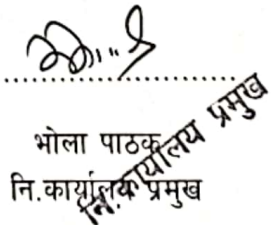 भोला पाठक
नि.कार्यालय प्रमुख
नि.कार्यालय प्रमुख